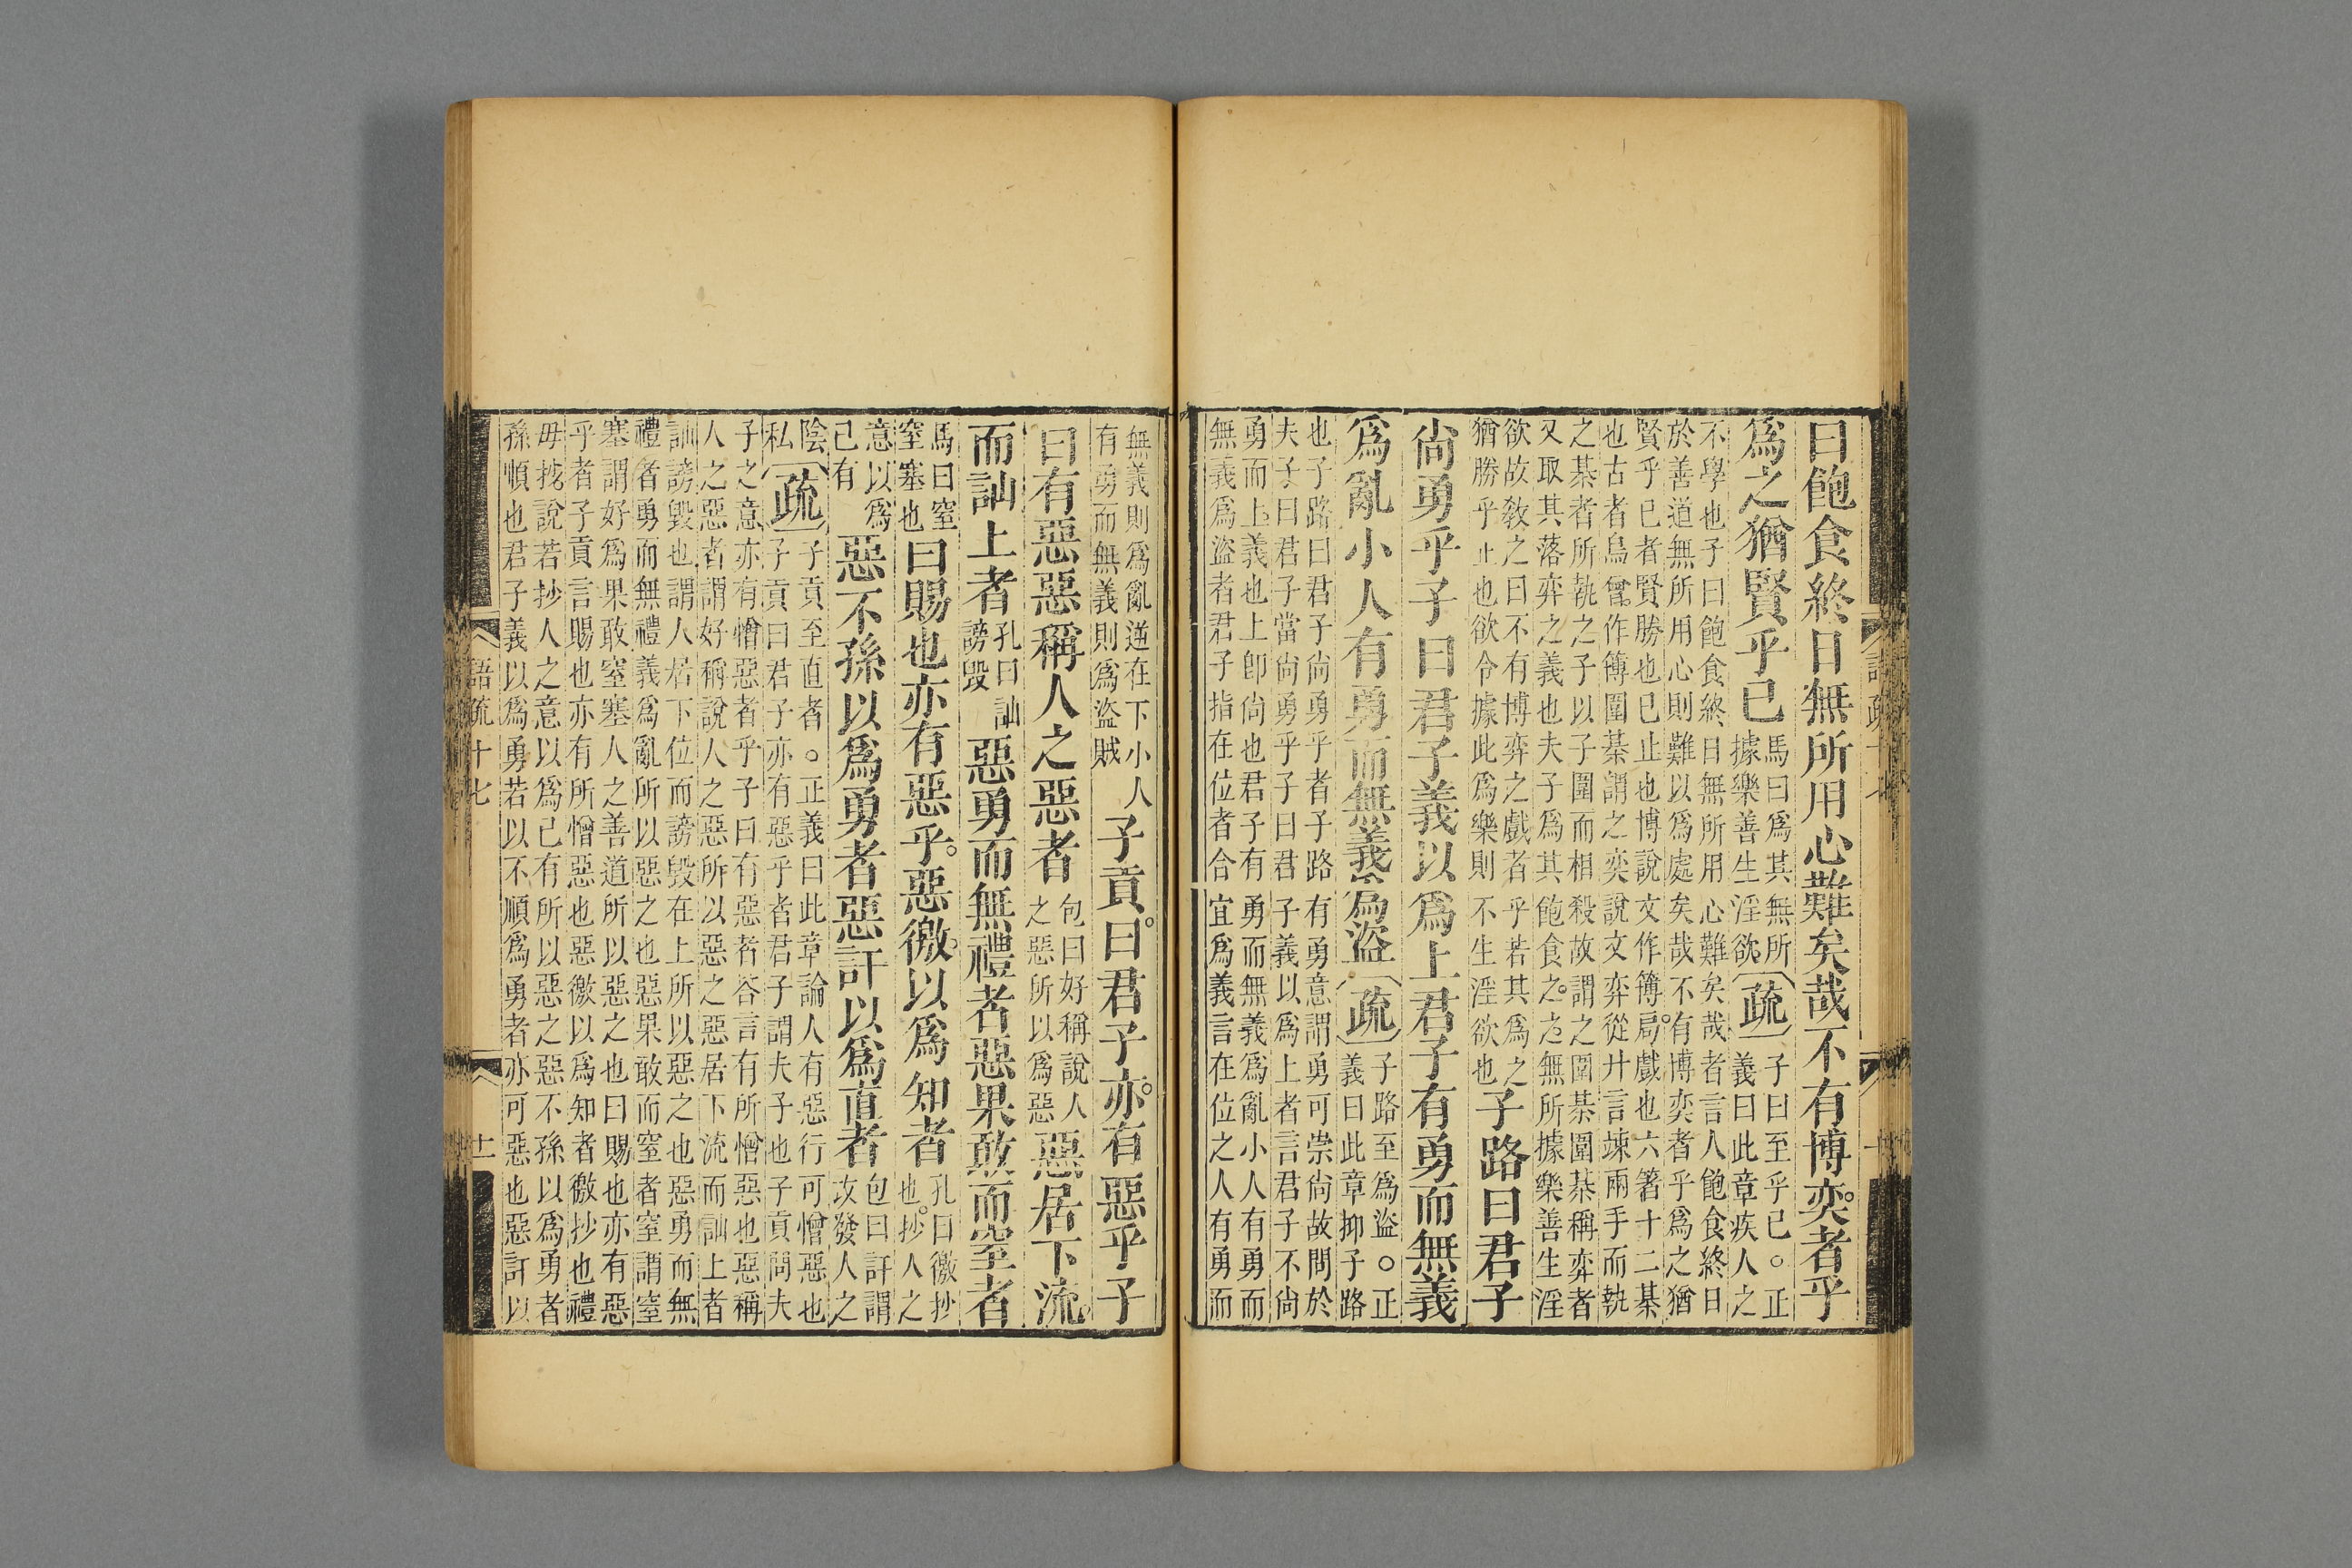 曰飽食終日無所用心難矣哉不有博奕者乎
爲之猶賢乎已馬曰爲其無所
據樂善生淫欲疏子曰至乎已○正
義曰此章疾人之
不學也子曰飽食終日無所用心難矣哉者言人飽食終日
於善道無所用心則難以爲處矣哉不有博奕者乎爲之猶
賢乎已者賢勝也已止也博說文作簙局戲也六箸十二棊
也古者烏曾作簙圍棊謂之奕說文弈從廾言竦兩手而執
之棊者所執之子以子圍而相殺故謂之圍棊圍棊稱弈者
又取其落弈之義也夫子爲其飽食之之無所據樂善生淫
欲故敎之曰不有博弈之戲者乎若其爲之
猶勝乎止也欲令據此爲樂則不生淫欲也子路曰君子
尙勇乎子曰君子義以爲上君子有勇而無義
爲亂小人有勇而無義爲盜疏子路至爲盜○正
義曰此章抑子路
也子路曰君子尙勇乎者子路有勇意謂勇可崇尙故問於
夫子曰君子當尙勇乎子曰君子義以爲上者言君子不尙
勇而上義也上卽尙也君子有勇而無義爲亂小人有勇而
無義爲盜者君子指在位者合宜爲義言在位之人有勇而
語疏十七
無義則爲亂逆在下小人
有勇而無義則爲盜賊子貢曰君子亦有惡乎子
曰有惡惡稱人之惡者包曰好稱說人
之惡所以爲惡惡居下流
而訕上者孔曰訕
謗毀惡勇而無禮者惡果敢而窒者
馬曰窒
窒塞也曰賜也亦有惡乎惡徼以爲知者孔曰徼抄
也抄人之
意以爲
己有惡不孫以爲勇者惡訐以爲直者包曰訐謂
攻發人之
陰
私疏子貢至直者○正義曰此章論人有惡行可憎惡也
子貢曰君子亦有惡乎者君子謂夫子也子貢問夫
子之意亦有憎惡者乎子曰有惡者荅言有所憎惡也惡稱
人之惡者謂好稱說人之惡所以惡之惡居下流而訕上者
訕謗毀也謂人居下位而謗毀在上所以惡之也惡勇而無
禮者勇而無禮義爲亂所以惡之也惡果敢而窒者窒謂窒
塞謂好爲果敢窒塞人之善道所以惡之也曰賜也亦有惡
乎者子貢言賜也亦有所憎惡也惡徼以爲知者徼抄也禮
毋抄說若抄人之意以爲己有所以惡之惡不孫以爲勇者
孫順也君子義以爲勇若以不順爲勇者亦可惡也惡訐以
語疏十七
十一